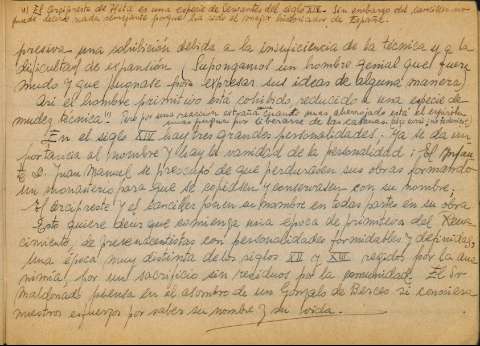 (1) El Arcipreste de Hita es una especie de Cervantes del siglo XIV. Sin embargo del canciller no
puede decirse nada semejante porque ha sido el mejor historiador de España.
presiva una inhibición debida a la insuficiencia de la técnica y a la
dificultad de expansión. Supongamos un hombre genial que fuera
mudo y que pugnase por expresar sus ideas de alguna manera)
Así el hombre primitivo está cohibido, reducido a una especie de
mudez técnica. Pero por una reacción extraña cuando más ahorrojado está el espíritu
más pugna por liberarse de las cadenas
En el siglo XIV hay tres grandes personalidades. Ya se da im
portancia al nombre y hay la vanidad de la personalidad. El Infan
te D. Juan Manuel se preocupó de que perdurasen sus obras formando
un monasterio para que se copiasen y conservasen con su nombre.
El arcipreste y el canciller ponen su nombre en todas partes en su obra
Esto quiere decir que comienza una época de primitivos del Rena
cimiento, de prerenacentistas con personalidades formidables y definidas,
una época muy distinta de los siglos XII y XIII regidos por la ano
nimia, por un sacrificio sin residuos por la comunidad. El Sr
Maldonado piensa en el asombro de un Gonzalo de Berceo si conociera
nuestros esfuerzos por saber su nombre y su vida.